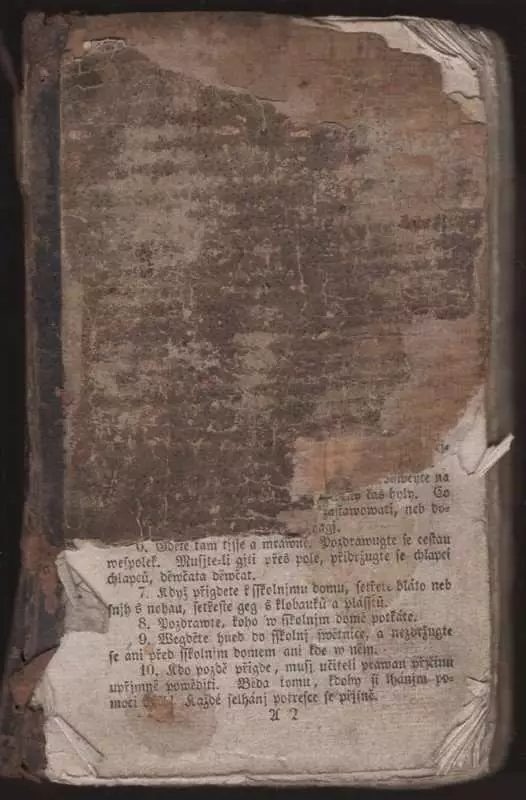 na
čas byly. Co
zastawowati, neb do=
6. Gděte tam tjsse a mrawně. Pozdrawugte se cestau
wespolek. Musjte=li gjti přes pole, přidržugte se chlapci
chlapců, děwčata děwčat.
7. Když přigdete k sskolnjmu domu, setřete bláto neb
snjh s nohau, setřeste geg s klobauků a plásstů.
8. Pozdrawte, koho w sskolnjm domě potkáte.
9. Wegděte hned do sskolnj swětnice, a nezdržugte
se ani před sskolnjm domem ani kde w něm.
10. Kdo pozdě přigde, musj učiteli prawau přjčinu
upřjmně powěditi. Běda tomu, kdoby si lhánjm po=
moci Každé selhánj potresce se přjsně.
A 2